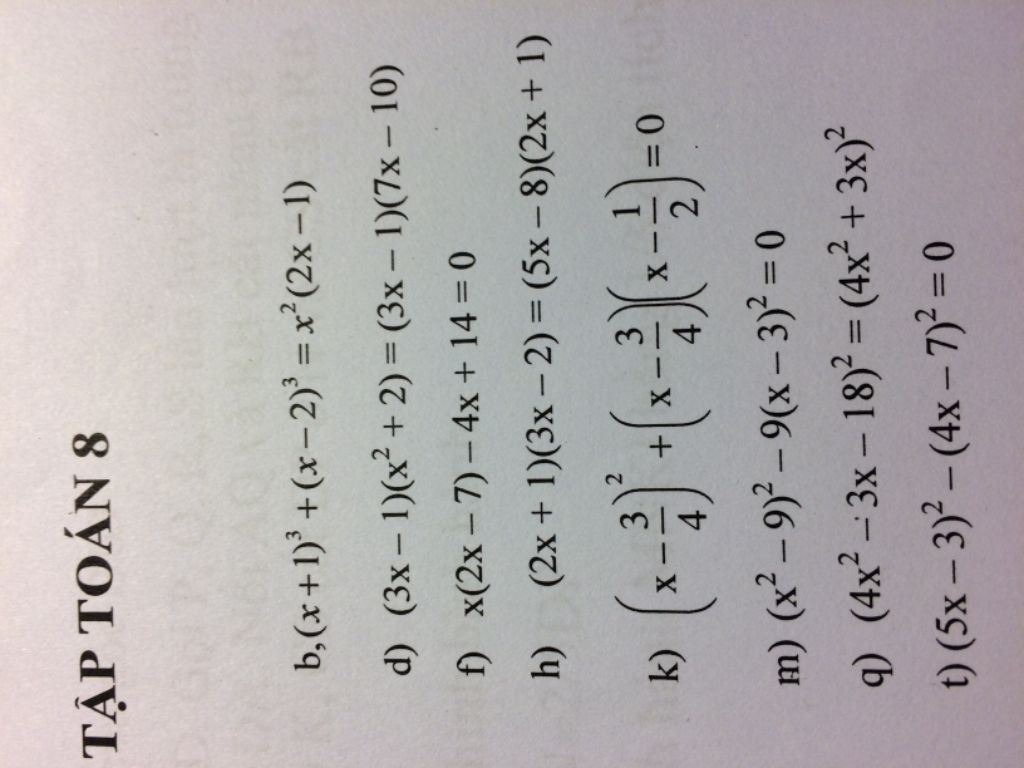 TẬP TOÁN 8
b,(x+1)³ + (x − 2)³ = x²(2x − 1)
d) (3x − 1)(x² + 2) = (3x − 1)(7x − 10)
f) x(2x − 7) − 4x + 14 = 0
h) (2x + 1)(3x − 2) = (5x − 8)(2x + 1)
k) (x − 3/4)² + (x − 3/4)(x − 1/2) = 0
m) (x² − 9)² − 9(x − 3)² = 0
q) (4x² − 3x − 18)² = (4x² + 3x)²
t) (5x − 3)² − (4x − 7)² = 0